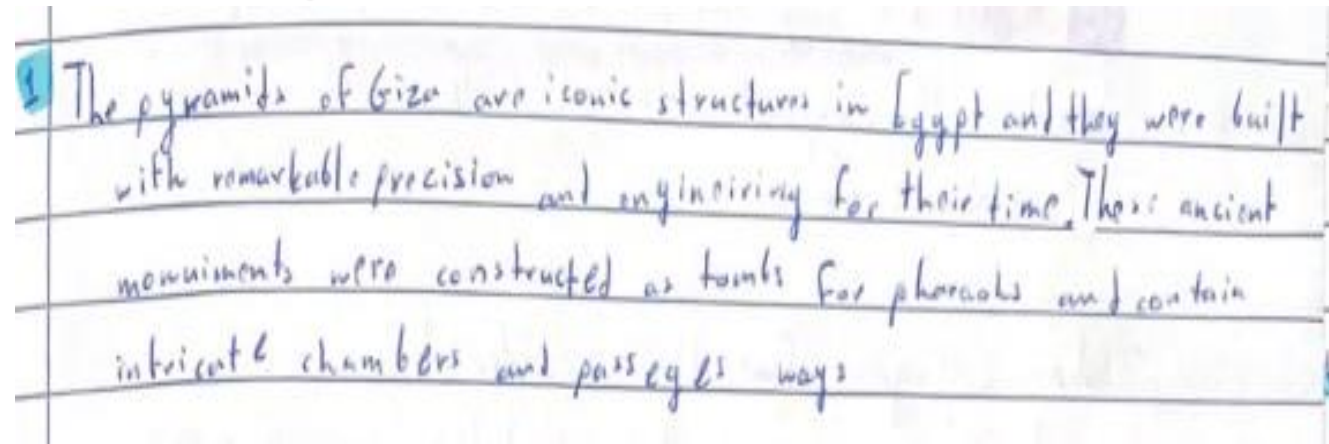 1 The pyramids of Giza are iconic structures in Egypt and they were built
with remarkable precision and engineiring for their time. These ancient
monuiments were constructed as tombs for pharaohs and contain
intricate chambers and passeges ways